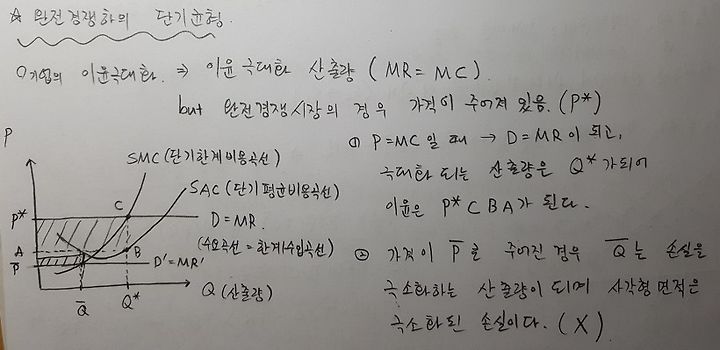 ☆ 완전경쟁하의 단기균형.
○기업의 이윤극대화. ⇒ 이윤 극대화 산출량 ( MR = MC ).
but 완전경쟁시장의 경우 가격이 주어져 있음. (P*)
① P=MC 일 때 → D=MR 이 되고,
극대화 되는 산출량은 Q* 가 되어
이윤은 P* C B A 가 된다.
② 가격이 P̅ 로 주어진 경우 Q̅ 는 손실을
극소화하는 산출량이 되며 사각형 면적은
극소화된 손실이다. (X)
P
SMC (단기한계비용곡선)
SAC (단기평균비용곡선)
C
P*
D = MR.
(수요곡선 = 한계수입곡선)
A
B
P̅
D' = MR'
Q (산출량)
Q̅
Q*